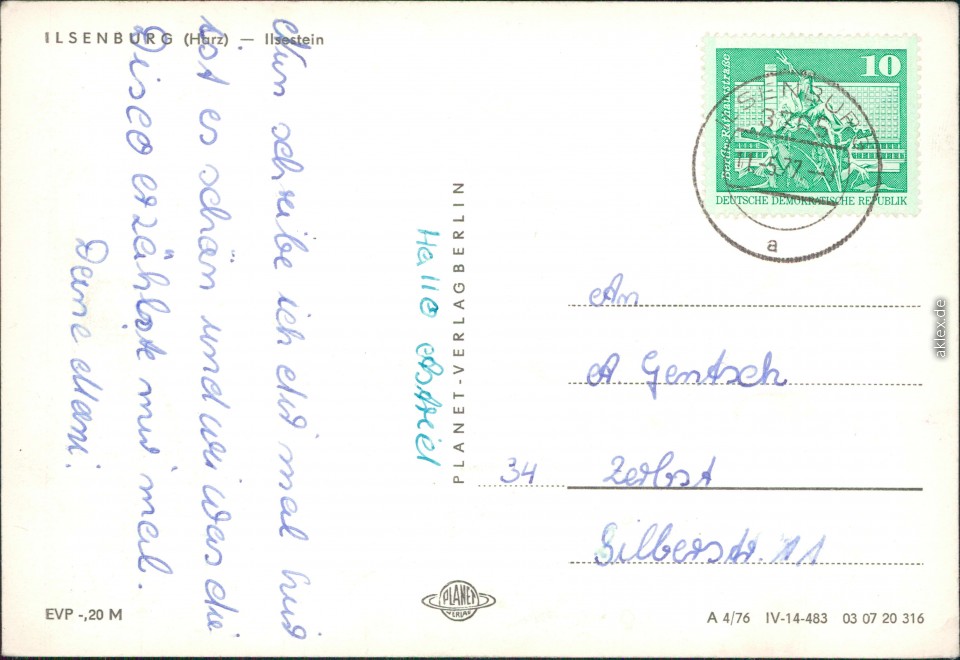 ILSENBURG (Harz) — Ilsestein
Hallo Astrid
Nun schreibe ich dir mal hier
ist es schön und wie was die
Disco erzählste mir mal.
Deine Mani.
PLANET-VERLAG BERLIN
10
Berlin, Rathausstraße
DEUTSCHE DEMOKRATISCHE REPUBLIK
ILSENBURG
a
An
A. Gentsch
34 Zerbst
Silberstr. 11
EVP -,20 M
PLANET
VERLAG
A 4/76 IV-14-483 03 07 20 316
aklex.de